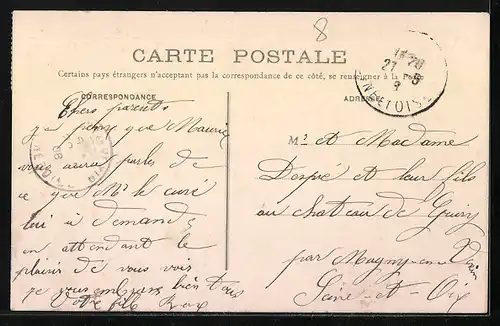 8
CARTE POSTALE
Certains pays étrangers n'acceptant pas la correspondance de ce côté, se renseigner à la Poste
CORRESPONDANCE
ADRESSE
27 5
Chers parents
j'ai pensé que Maurice
vous aurai parler de
ce que Mr le curé
lui à demandé
en attendant le
plaisir de vous voir
je vous embrasse bien tous
Votre fils
Mr et Madame
et leur fils
au chateau de Guiry
par Magny-en-Vexin
Seine-et-Oise